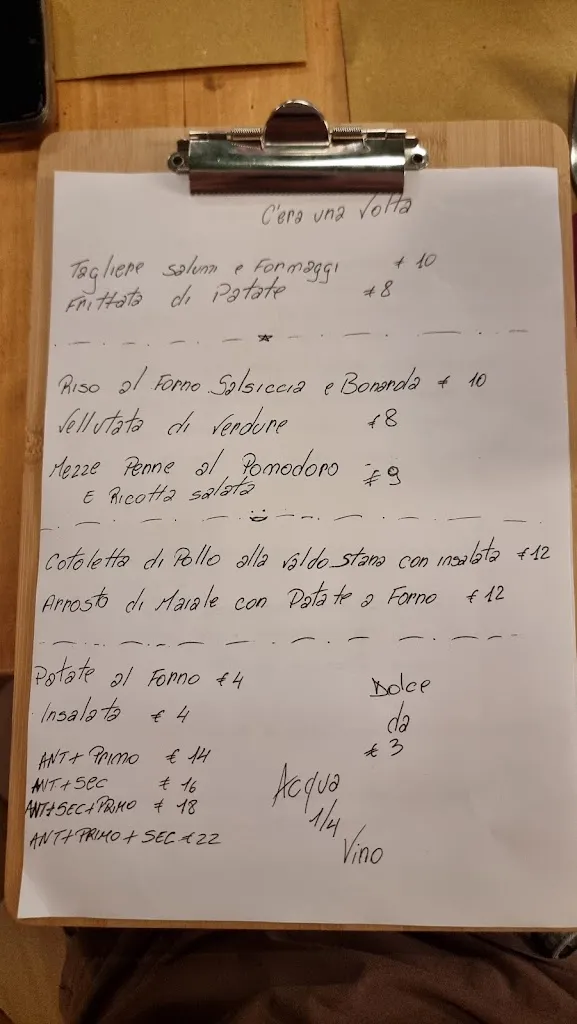 C'era una Volta
Tagliere salumi e Formaggi € 10
Frittata di Patate €8
Riso al Forno Salsiccia e Bonarda € 10
Vellutata di Verdure €8
Mezze Penne al Pomodoro € 9
E Ricotta salata
Cotoletta di Pollo alla valdostana con insalata €12
Arrosto di Maiale con Patate a Forno €12
Patate al Forno €4
Insalata € 4
Dolce
da
€ 3
ANT+ Primo € 14
ANT+SEC € 16
ANT+SEC+PRIMO € 18
ANT+PRIMO+ SEC €22
Acqua
1/4
Vino